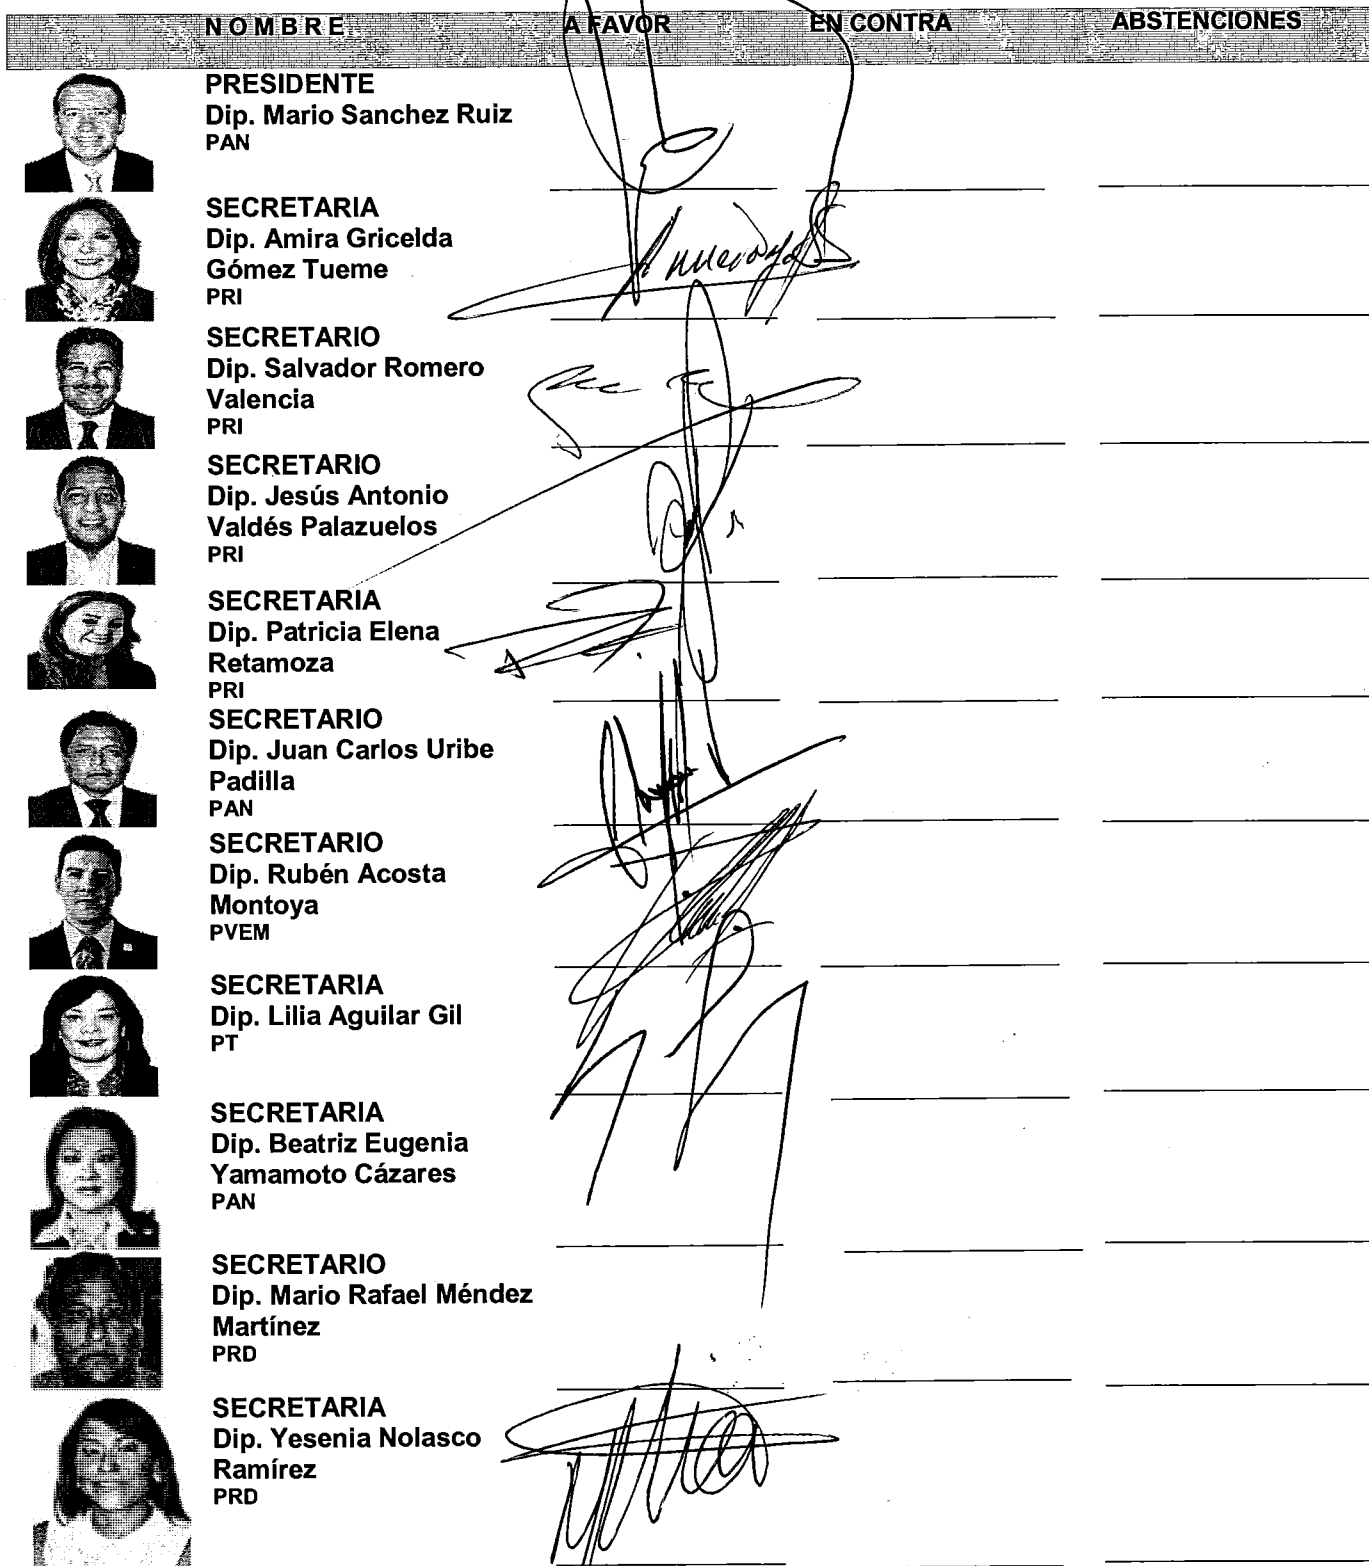 NOMBRE A FAVOR EN CONTRA ABSTENCIONES
PRESIDENTE
Dip. Mario Sanchez Ruiz
PAN
SECRETARIA
Dip. Amira Gricelda
Gómez Tueme
PRI
SECRETARIO
Dip. Salvador Romero
Valencia
PRI
SECRETARIO
Dip. Jesús Antonio
Valdés Palazuelos
PRI
SECRETARIA
Dip. Patricia Elena
Retamoza
PRI
SECRETARIO
Dip. Juan Carlos Uribe
Padilla
PAN
SECRETARIO
Dip. Rubén Acosta
Montoya
PVEM
SECRETARIA
Dip. Lilia Aguilar Gil
PT
SECRETARIA
Dip. Beatriz Eugenia
Yamamoto Cázares
PAN
SECRETARIO
Dip. Mario Rafael Méndez
Martínez
PRD
SECRETARIA
Dip. Yesenia Nolasco
Ramírez
PRD